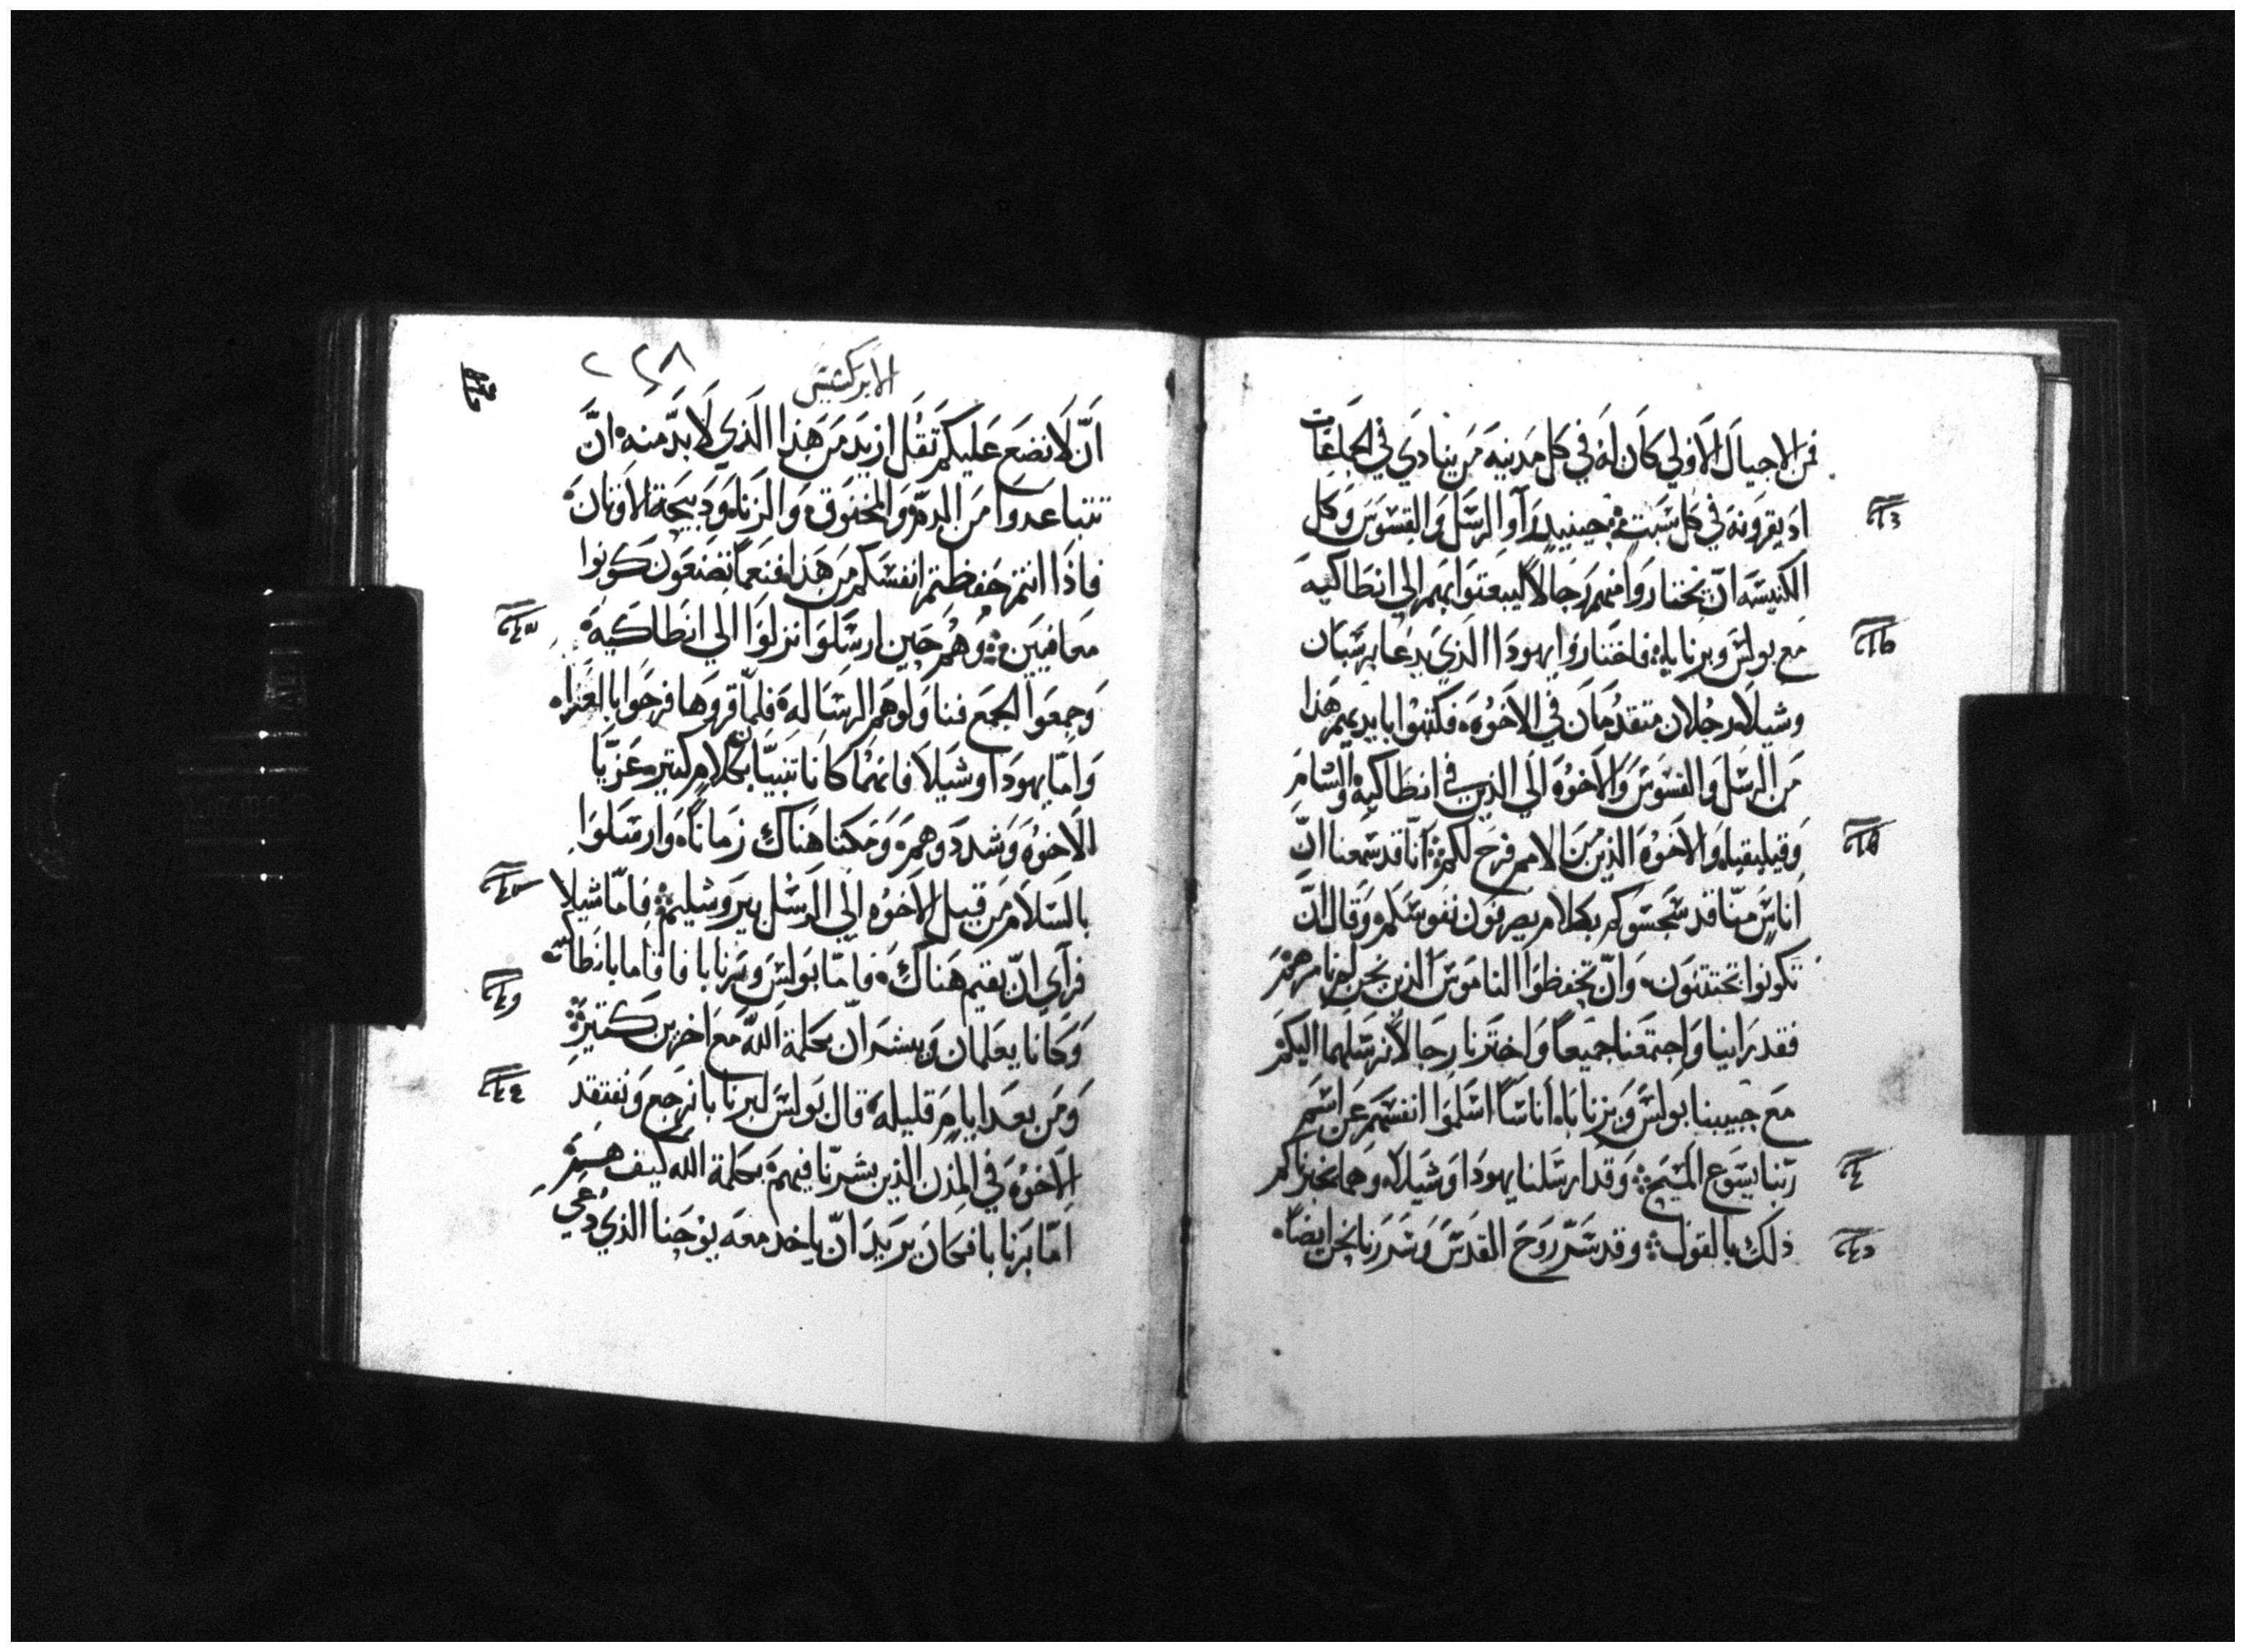 فمن الاجيال الاولي كان له في كل مدينه من ينادي في الجماعات
اذ يقرونه في كل سبت حينيذ رآوا الرسل والقسوس وكل
الكنيسه ان يختاروا منهم رجالاً ليبعتوا بهم الي انطاكيه
مع بولس وبرنابا فاختاروا يهودا الذي يدعا برسبان
وشيلا رجلان متقدمان في الاخوه فكتبوا بايديهم هذا
من الرسل والقسوس والاخوه الي الذين في انطاكيه والشام
وقيليقيا والاخوه الذين من الامم فرح لكم انا قد سمعنا ان
اناس منا قد سجسوكم بكلام يصرفون نفوسكم وقال ان
تكونوا تختتنون وان تحفظوا الناموس الذين نحن لم نامرهم
فقد راينا واجتمعنا جميعاً واخترنا رجالاً نرسلهما اليكم
مع حبيبنا بولس وبرنابا اناساً اسلموا انفسهم عن اسم
ربنا يسوع المسيح وقد ارسلنا يهودا وشيلا وهما يخبراكم
ذلك بالقول وقد سر روح القدس وسررنا نحن ايضاً
الابركسيس
٢٢٨
ان لا نضع عليكم تقل ازيد من هذا الذي لا بد منه ان
تتباعدوا من الدم والمخنوق والزنا ودبيحة الاوتان
فاذا انتم حفظتم انفسكم من هذا فنعما تصنعون كونوا
معافيين وهم حين ارسلوا نزلوا الي انطاكيه
وجمعوا الجمع فناولوهم الرساله فلما قروها فرحوا بالعزاه
واما يهودا وشيلا فانهما كانا تنبيا بكلام كتير معزيا
الاخوه وشددوهم ومكتا هناك زماناً وارسلوا
بالسلام من قبل الاخوه الي الرسل بيروشليم فاما شيلا
فرآي ان يقيم هناك فاما بولس وبرنابا فاقاما بانطاكيه
وكانا يعلمان ويبشران بكلمة الله مع اخرين كتيرة
ومن بعد ايام قليله قال بولس لبرنابا نرجع ونفتقد
الاخوه في المدن الذين بشرنا فيهم بكلمة الله كيف هم
اما برنابا فكان يريد ان ياخد معه يوحنا الذي دعي